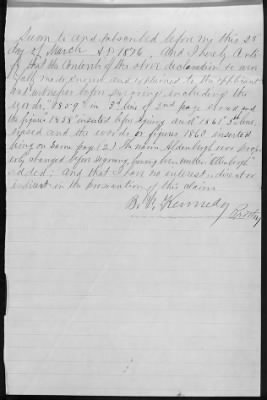 Sworn to and subscribed before me this 28
day of March A.D. 1876. And I hereby certi
fy that the contents of the above declaration &c were
fully made known and explained to the applicant
and witnesses before signing including the
words "1859" in 3d line of 2nd page and
the figures "1858" inserted before signing and "1861" 5th line,
erased and the words or figures 1860 inserted
being on same page (2.) the name Aldenburgh were prop
erly changed before signing, having been written
added; And that I have no interest, direct or
indirect in the prosecution of this claim
B. F. Kennedy
Prothy